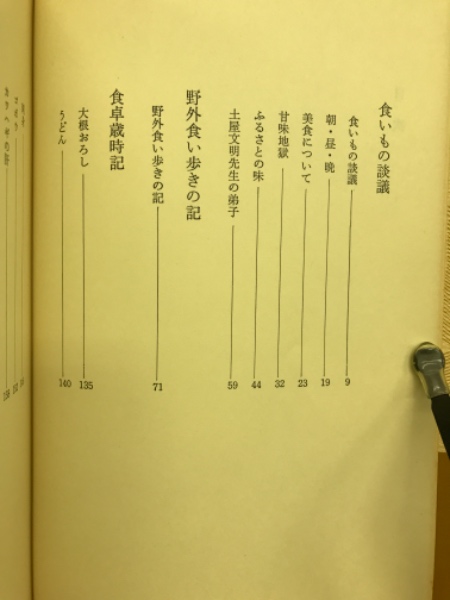 食いもの談議
食いもの談議 9
朝・昼・晩 19
美食について 23
甘味地獄 32
ふるさとの味 44
土屋文明先生の弟子 59
野外食い歩きの記
野外食い歩きの記 71
食卓歳時記
大根おろし 135
うどん 140